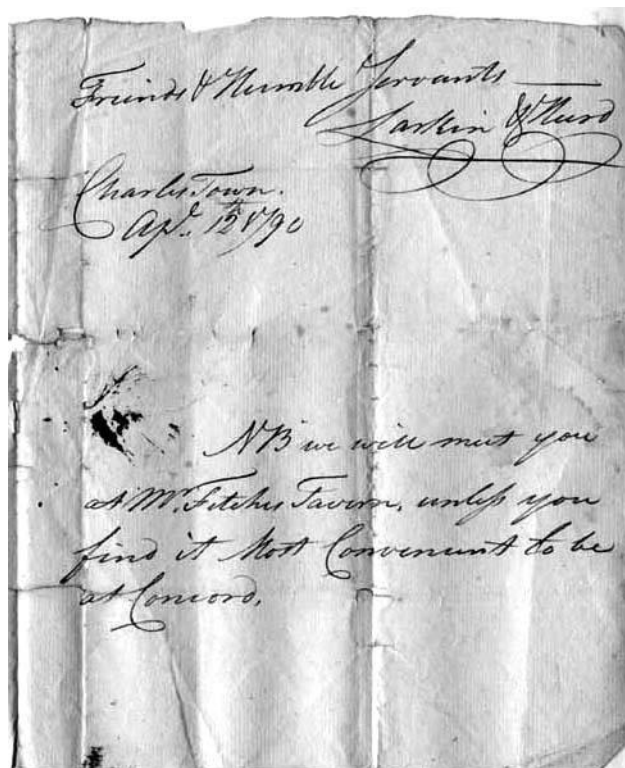 Friends & Humble Servants
Larkin & Hurd
Charles Town.
Apl. 12th 1790
NB we will meet you
at Mr. Fitches Tavern, unless you
find it Most Convenient to be
at Concord.